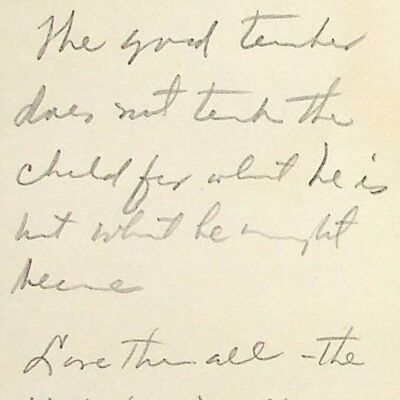 The good teacher
does not teach the
child for what he is
but what he might
become
Love them all - the